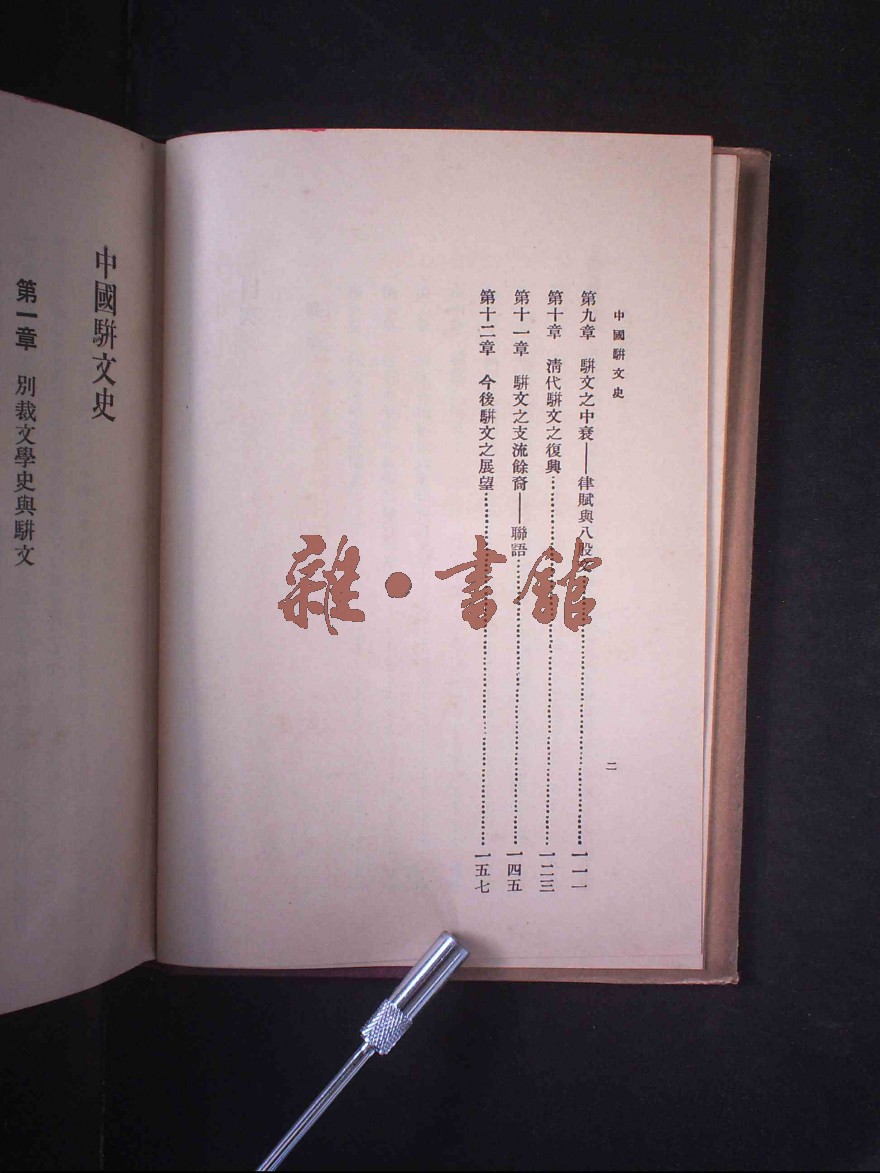 中國駢文史
第九章　駢文之中衰——律賦與八股文……一一一
第十章　清代駢文之復興……一二三
第十一章　駢文之支流餘裔——聯語……一四五
第十二章　今後駢文之展望……一五七
二
中國駢文史
第一章　別裁文學史與駢文
雜·書館